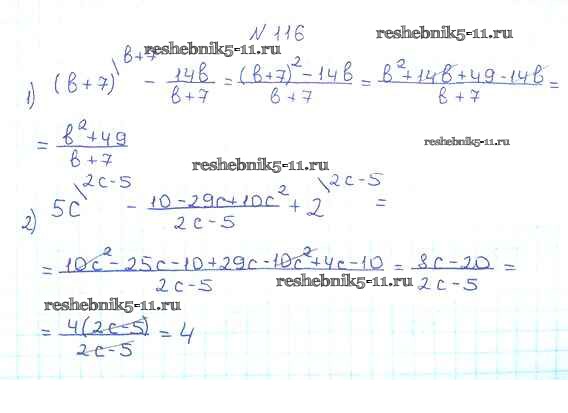 № 116
reshebnik5-11.ru reshebnik5-11.ru
1) (b+7)^(b+7) - 14b/(b+7) = ((b+7)² - 14b)/(b+7) = (b²+14b+49-14b)/(b+7) =
= (b²+49)/(b+7)
reshebnik5-11.ru
reshebnik5-11.ru
2) 5c^(2c-5) - (10-29c+10c²)/(2c-5) + 2^(2c-5) =
= (10c²-25c-10+29c-10c²+4c-10)/(2c-5) = (8c-20)/(2c-5) =
reshebnik5-11.ru
reshebnik5-11.ru
= 4(2c-5)/(2c-5) = 4